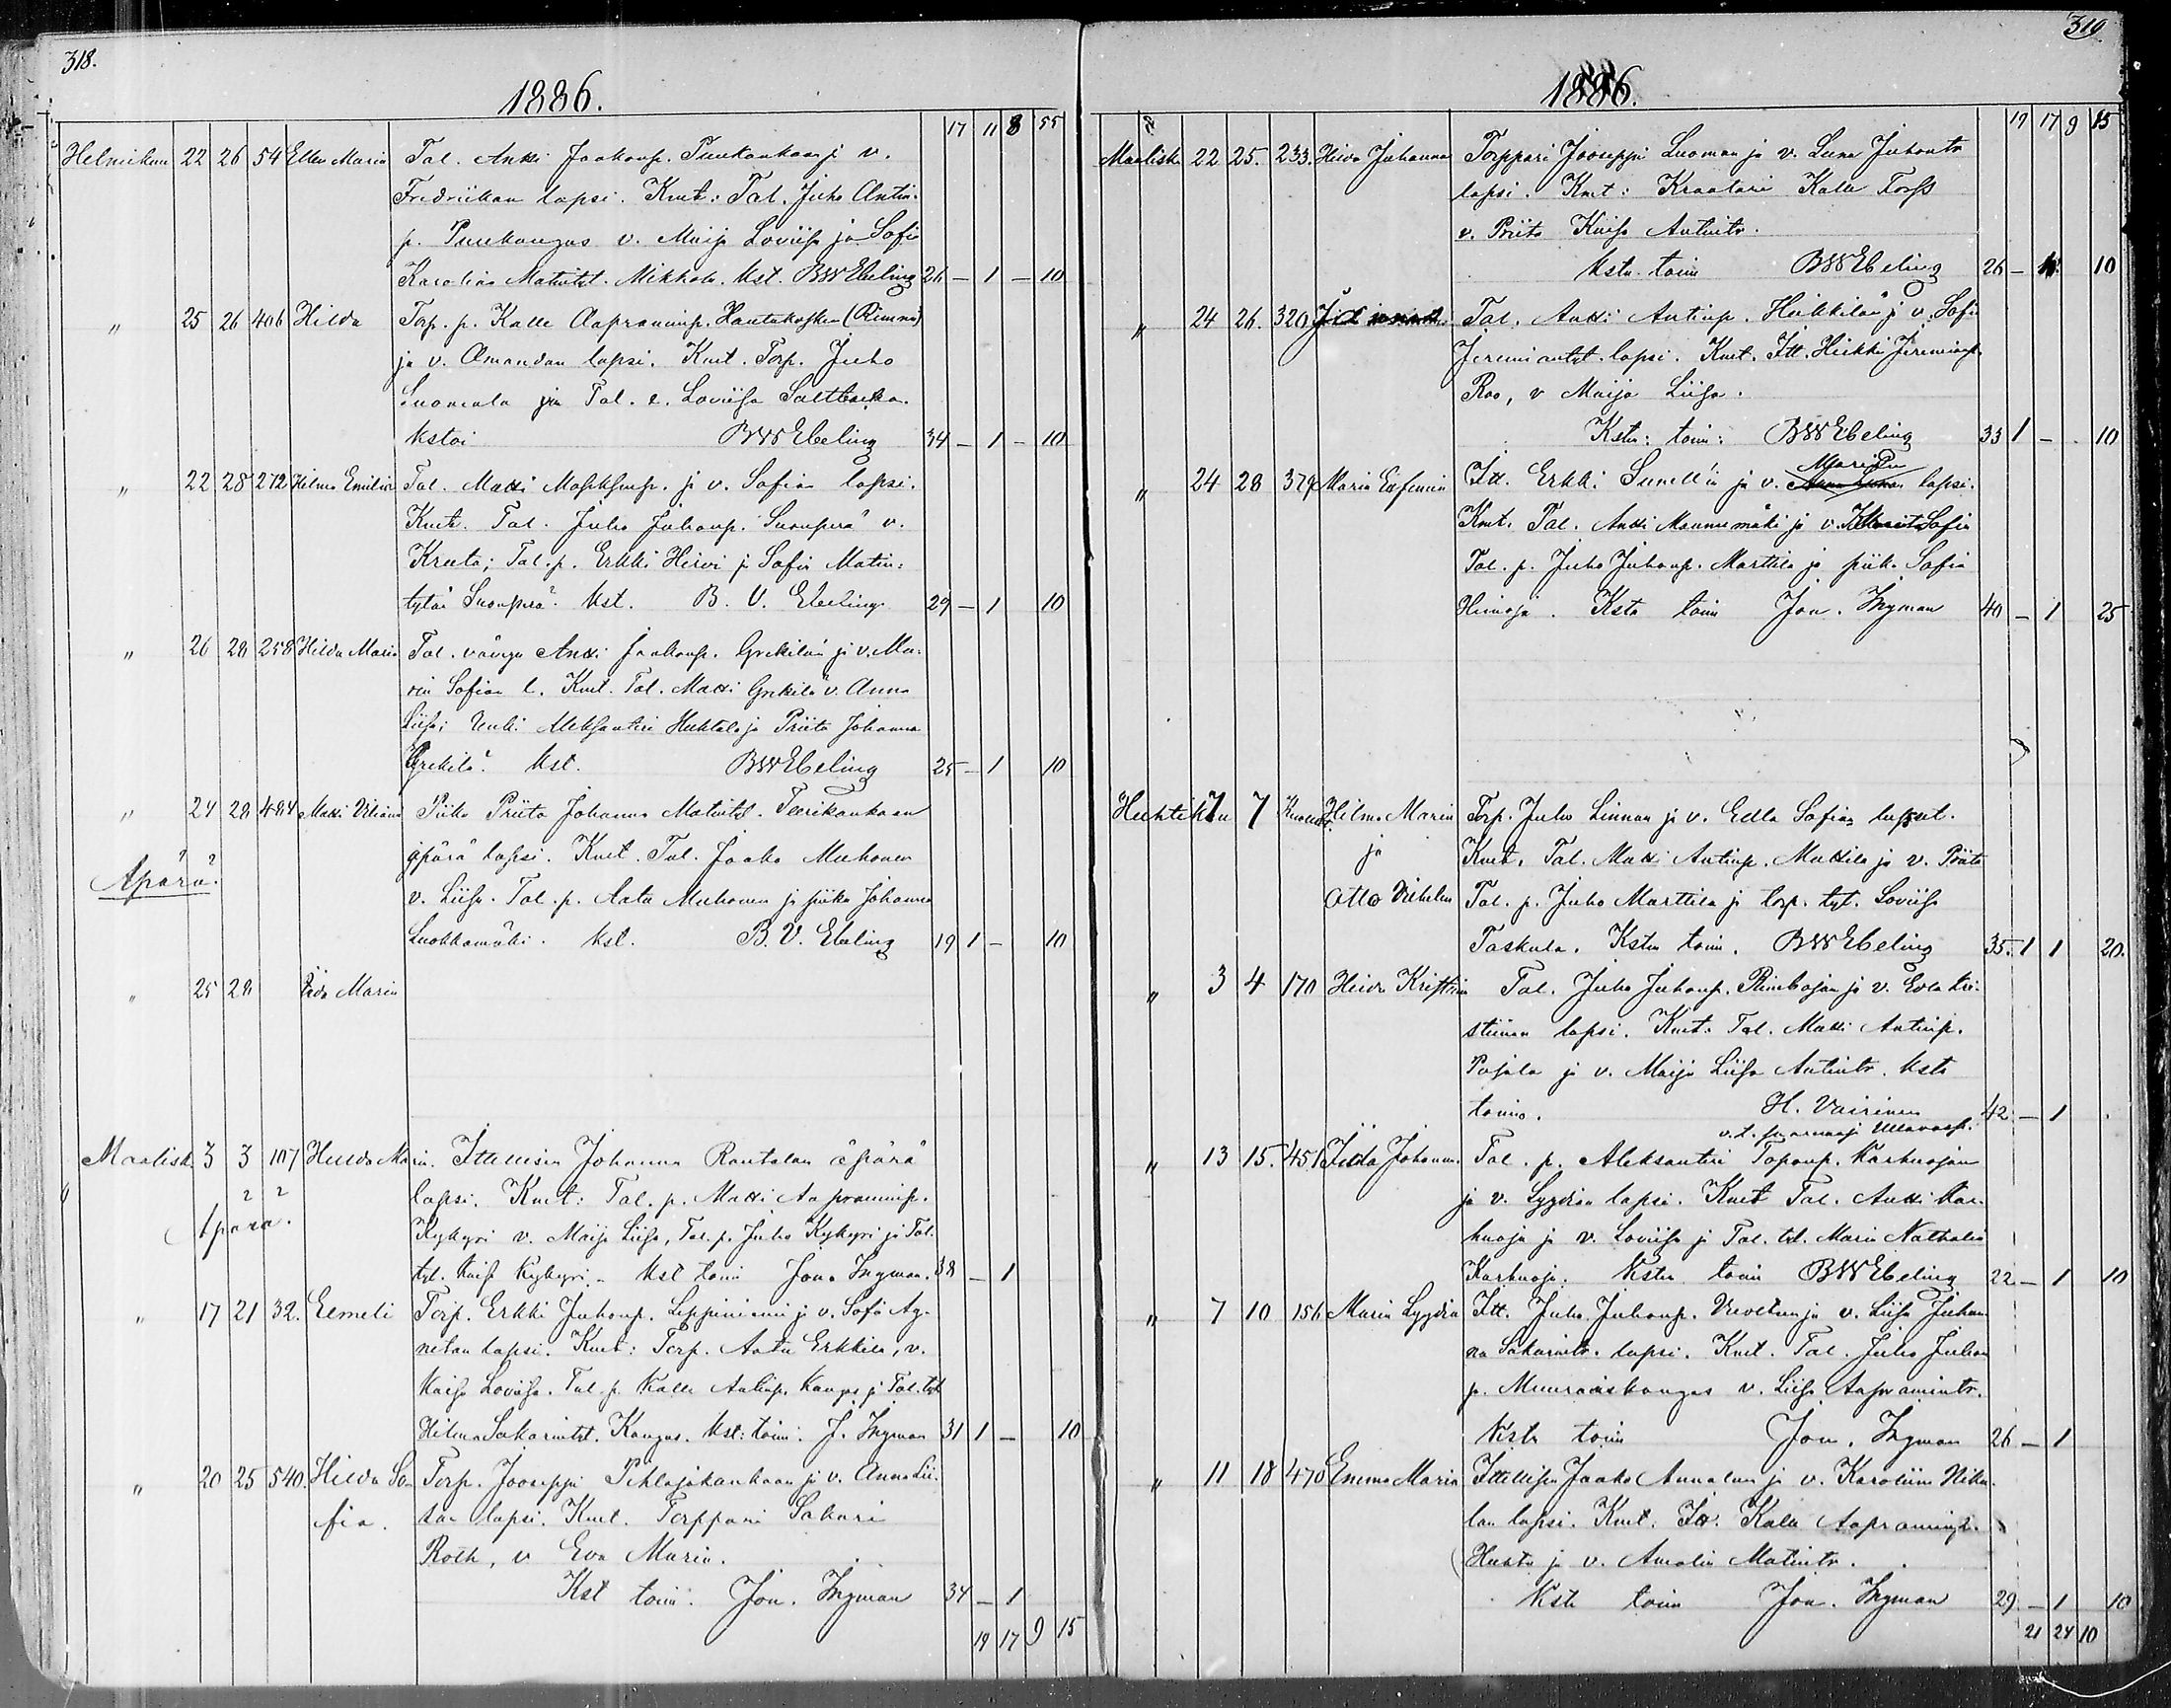 318.
1886.
17 11 8 55
Helmikuu 22 26 54 Ellen Maria Tal. Antti Jaakonp. Puukankaan ja v.
Fredriikan lapsi. Kmt: Tal. Juho Antin-
p. Puukangas v. Maija Loviisa ja Sofia
Karoliina Matintyt. Mikkola. Kst. BWEbeling 26 — 1 — 10
„ 25 26 406 Hilda Torp. p. Kalle Aapraminp. Hautakosken (Rimmi)
ja v. Amandan lapsi. Kmt. Torp. Juho
Suomala ja Tal. e. Loviisa Saltbacka.
Kstoi BWEbeling 34 — 1 — 10
„ 22 28 272 Hilma Emilia Tal. Matti ja v. Sofian lapsi.
Kmt. Tal. Juho Juhonp. Suonperä v.
Kreeta; Tal. p. Erkki Hirvi ja Sofia Matin-
tytär Suonperä. Kst. B. V. Ebeling 29 — 1 10
„ 26 28 258 Hilda Maria Tal. vävyn Antti Jaakonp. Grekilän ja v. Ma-
ria Sofian l. Kmt. Tal. Matti Grekilä v. Anna
Liisa; Renki Aleksanteri Huhtala ja Priita Johanna
Grekilä. Kst. BWEbeling 25 — 1 10
„ 24 28 484 Matti Viliami Piika Priita Johanna Matintyt. Teerikankaan
Äpärä.
äpärä lapsi. Kmt. Tal. Jaako Muhonen
v. Liisa. Tal. p. Aatu Muhonen ja piika Johanna
Luokkamäki. Kst. B. V. Ebeling 19 1 — 10
„ 25 28 Iida Maria
Maalisk. 3 3 107 Hulda Maria. Itsellisen Johanna Rautalan äpärä
Äpärä.
lapsi. Kmt: Tal. p. Matti Aapraminp.
Kykyri v. Maija Liisa, Tal. p. Juho Kykyri ja Tal.
tyt. Kaisa Kykyri. Kst toim Jon. Ingman. 38 — 1
„ 17 21 32. Eemeli Torp. Erkki Juhonp. Leppiniemi ja v. Sofia Ag-
netan lapsi. Kmt: Torp. Aatu Erkkilä, v.
Kaisa Loviisa. Tal. p. Kalle Antinp. Kangas ja Tal. tyt
Hilma Sakarintyt. Kangas. Kst: toim. J. Ingman 31 1 — 10
„ 20 25 540. Hilda So- Torp. Jooseppi Pihlajakankaan ja v. Anna Lii-
fia. san lapsi. Kmt. Torppari Sakari
Roth, v Eva Maria.
Kst toim: Jon. Ingman 34 — 1
19 17 9 15
319.
1886.
19 17 9 15
Maalisk. 22 25. 233. Hilda Johanna Torppari Jooseppi Luoman ja v. Leena Juhontr
lapsi. Kmt: Kraatari Kalle Forss
v. Priita Kaisa Antintr.
Kstn. toim BWEbeling 26 — 1 10
„ 24 26. 320 Tal. Antti Antinp. Heikkilän ja v. Sofia
Jeremiantyt. lapsi. Kmt. Itt. Heikki Jeremianp.
Roo, v Maija Liisa.
Kstn: toim: BWEbeling 33 1 — 10
„ 24 28 379 Maria Eufemia Itt. Erkki Sunell'in ja v. lapsi.
Kmt. Tal. Antti Maunumäki ja v. Sofia
Tal. p. Juho Juhonp. Marttila ja piika Sofia
Himoja. Kstn toim Jon. Ingman 40 — 1 25
Huhtikuu 7 Hilma Maria Torp. Juho Linnan ja v. Edla Sofian lapset.
ja Kmt. Tal. Matti Antinp. Mattila ja v. Priita
Otto Vilhelm Tal. p. Juho Marttila ja torp. tyt. Loviisa
Taskula. Kstn toim. BWEbeling 35. 1 1 20.
„ 3 4 170 Hilda Kristiina Tal. Juho Juhonp. Rimbojan ja v. Eva Kri-
stiinan lapsi. Kmt: Tal. Matti Antinp.
Pojala ja v. Maija Liisa Antintr. Kstn
toim. H. Väirinen 42 — 1
„ 13 15. 451 Johanna Tal. p. Aleksanteri Taponp. Karhuojan
ja v. Lyydian lapsi. Kmt Tal. Antti Kar-
huoja ja v. Loviisa ja Tal. tyt. Maria Nathalia
Karhuoja. Kstn toim BWEbeling 22 — 1 10
„ 7 10 156 Maria Lyydia Itt. Juho Juhonp. ja v. Liisa Johan-
na Sakarintr. lapsi. Kmt. Tal. Juho Juhon
p. Muuraiskangas v. Liisa Aapramintr.
Kstn toim Jon. Ingman 26 — 1
„ 11 18 470 Emma Maria Itsellisen Jaako Annalan ja v. Karoliina Niku-
lan lapsi. Kmt. Itt. Kalle Aapraminp.
Husta ja v. Amalia Matintr.
Kstn toim Jon. Ingman 29 — 1 10
21 24 10